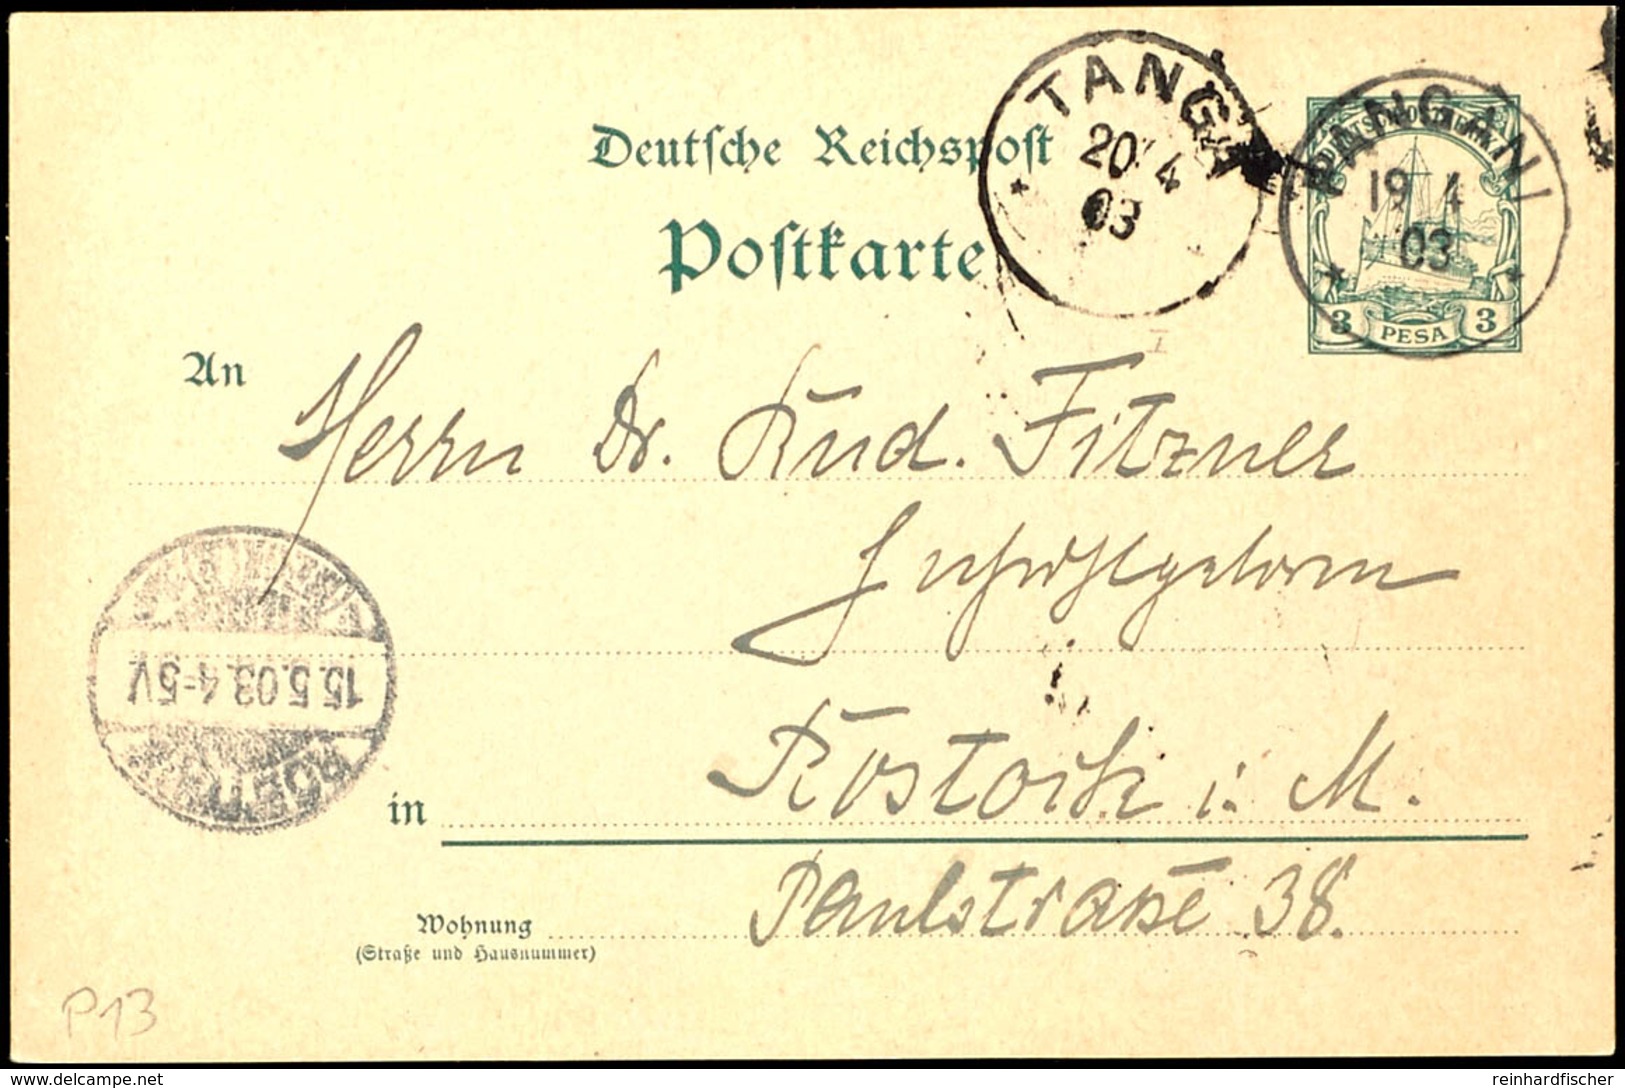 Deutsche Reichspost
Postkarte
TANGA
20 4
03
PANGANI
19 4
03
3 PESA 3
An Herrn Dr. Rud. Fitzner
15.5.03. 4-5V
in Rostock i. M.
Wohnung Paulstrasse 38.
(Straße und Hausnummer)
P 13
delcampe.net
reinhardfischer